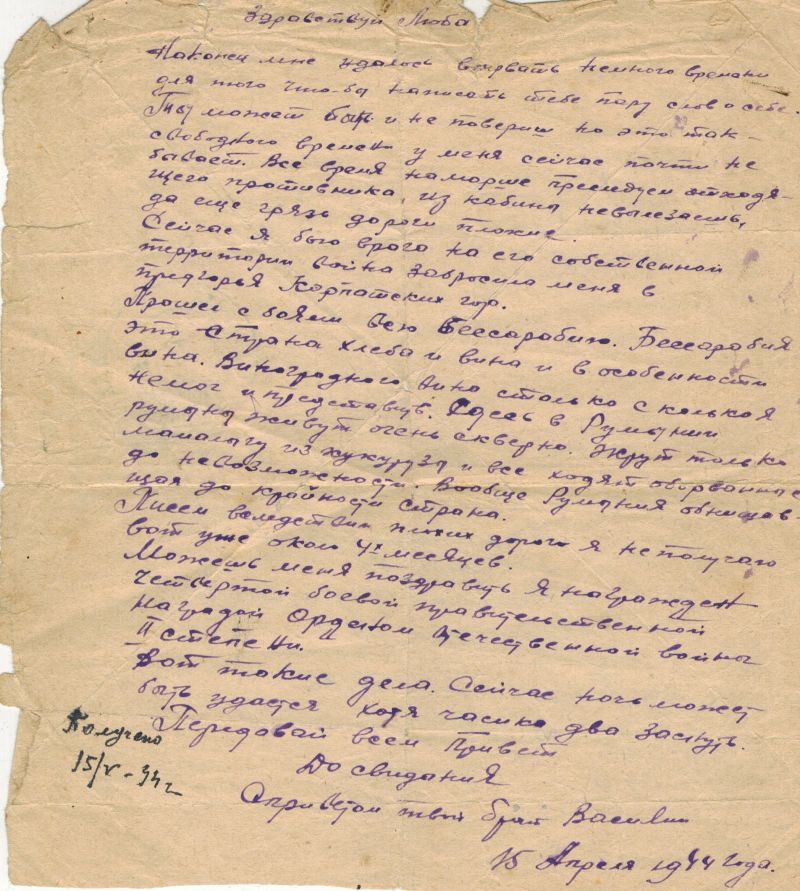 Здравствуй Люба
Наконец мне удалось вырвать немного времени
для того что-бы написать тебе пару слов о себе.
Ты может быть и не повериш но это так-
свободного времени у меня сейчас почти не
бывает. Все время на марше преследуем отходя-
щего противника, из кабины невылезаешь,
да еще грязь дороги плохие.
Сейчас я бью врага на его собственной
территории война забросила меня в
предгорья Карпатских гор.
Прошел с боями всю Бессарабию. Бессарабия
это страна хлеба и вина и в особенности
вина. Виноградного вина столько сколько я
немог и представить. Здесь в Румынии
румыны живут очень скверно. Жрут только
мамалагу из кукурузы и все ходят оборванные
до невозможности. Вообще Румыния обнищав-
щая до крайности страна.
Писем вследствии плохих дорог я не получаю
вот уже около 4х месяцев.
Можешь меня поздравить я награжден
четвертой боевой правительственной
наградой Орденом Отечественной войны
II степени.
Вот такие дела. Сейчас ночь может
быть удастся хотя часика два заснуть.
Передавай всем Привет
До свидания
С приветом твой брат Василий
15 Апреля 1944 года.
Получено
15/V-44 г